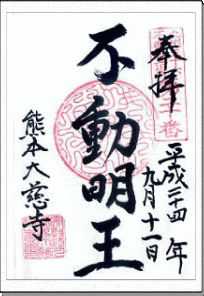 奉拝
平成二十四年
九月十一日
不動明王
熊本大慈寺